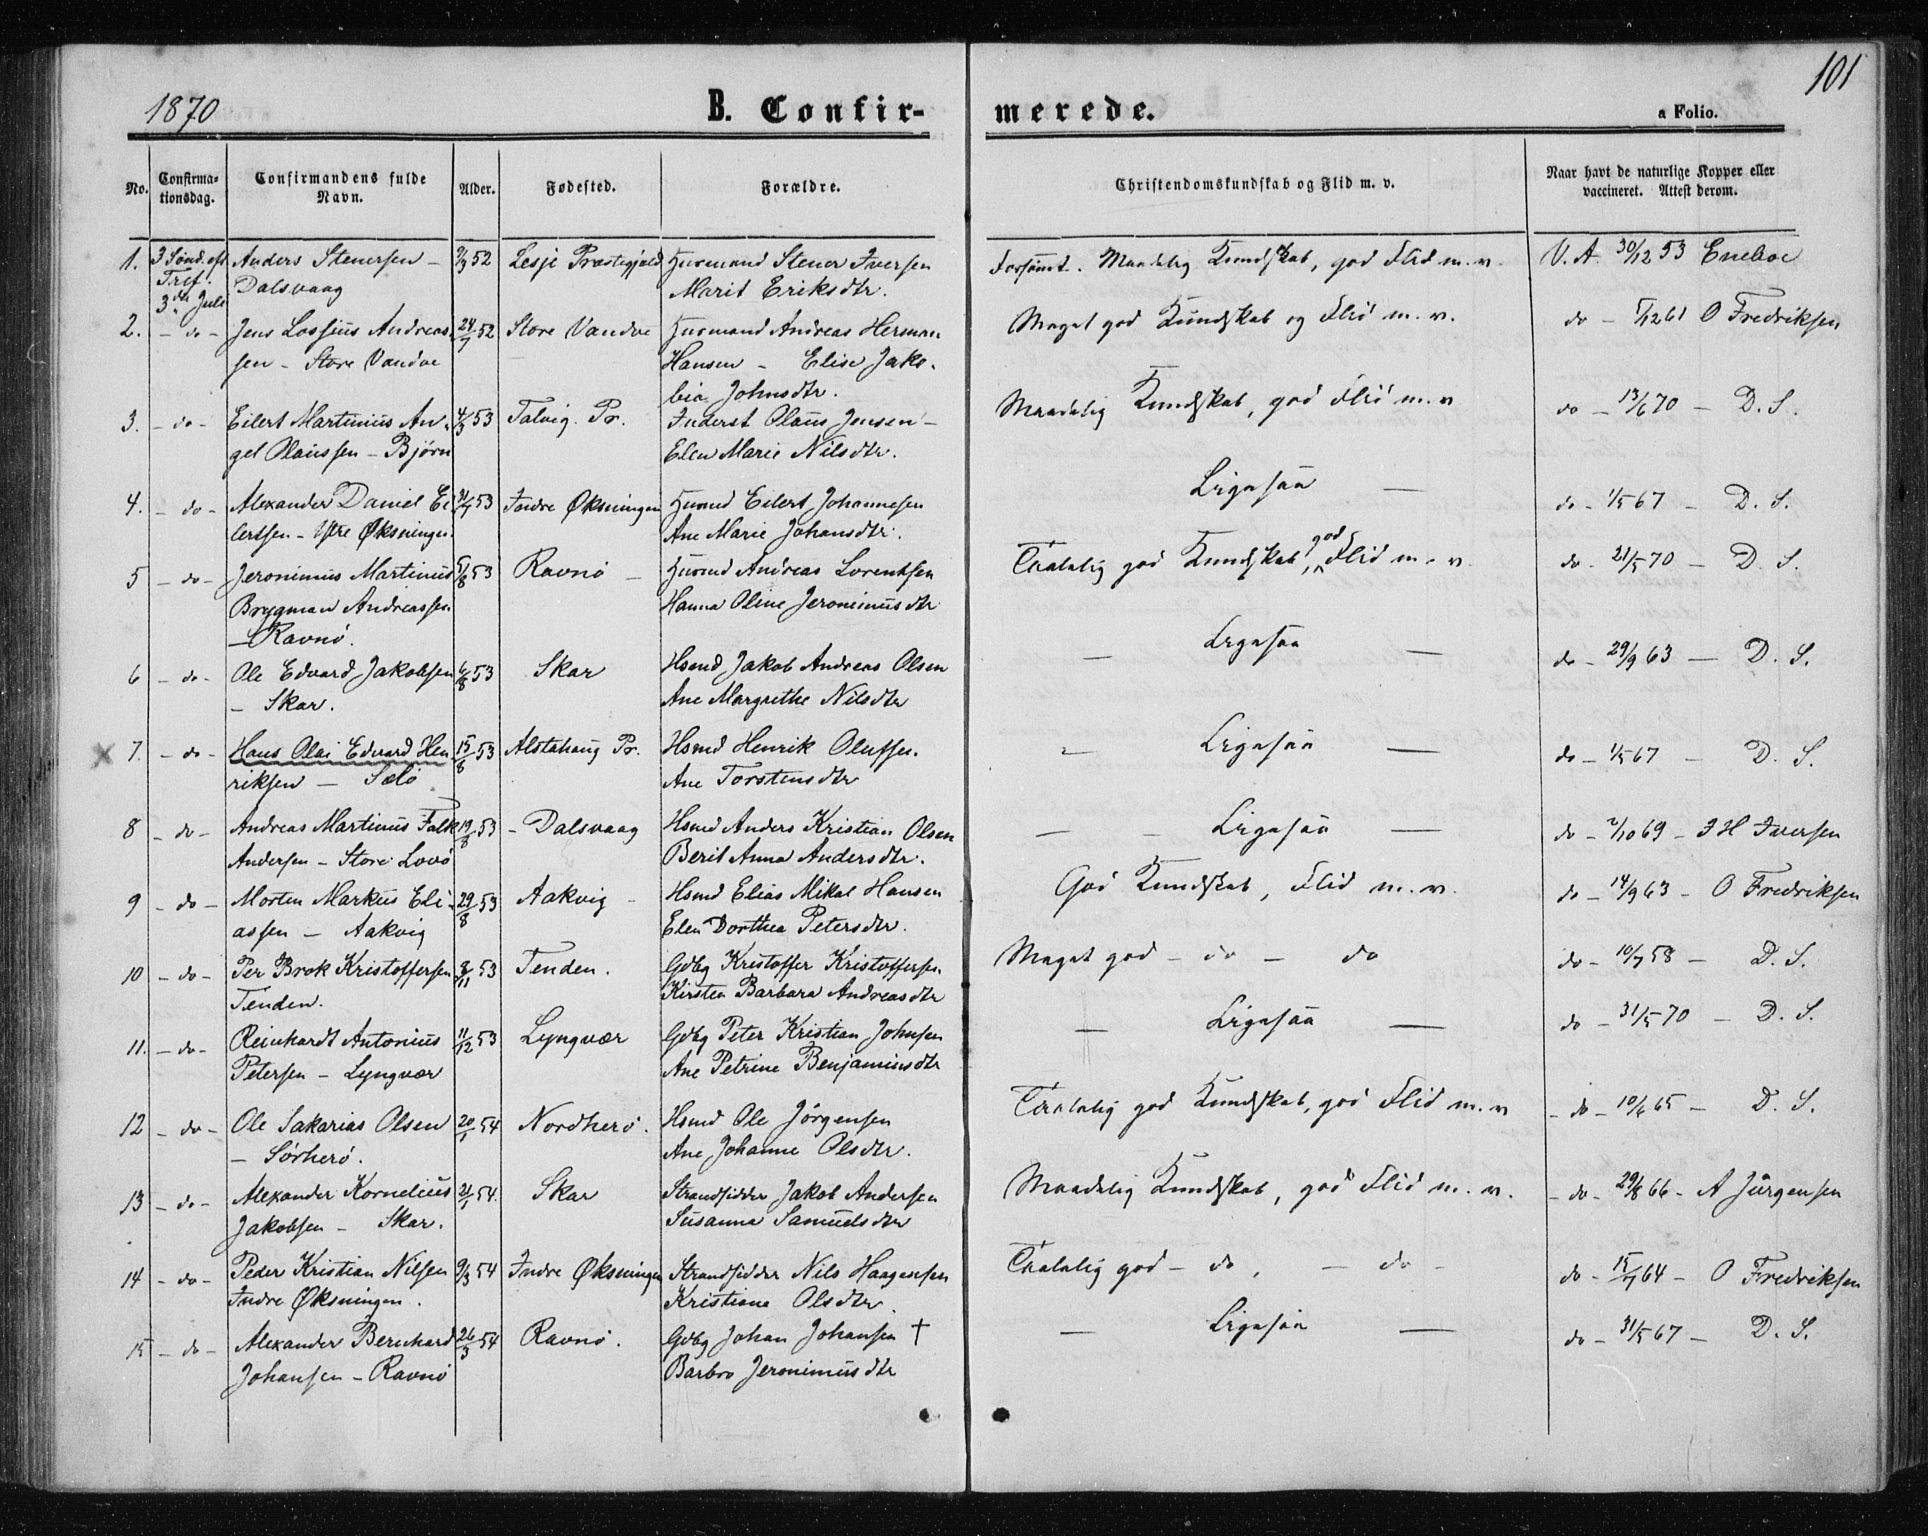 1870
B. Confir-
merede.
101
a Folio.
No.
Confirma-
tionsdag.
Confirmandens fulde
Navn.
Alder.
Fødested.
Forældre.
Christendomskundskab og Flid m. v.
Naar havt de naturlige Kopper eller
vaccineret. Attest derom.
1. 3 Sönd. eft. Anders Stenersen – 52 Lesje Præstegjeld Husmand Stener Iversen Forsømt. Maadelig Kundskab, god Flid m. v. V. A. 30/12 53 Eneboe
Trif. Dalsvaag Marit Eriksdtr.
3die Juli
2. – do – Jens Lossius Andreas- 24/7 52 Store Vandve Husmand Andreas Herman Meget god Kundskab og Flid m. v. do – 61 O Fredriksen
sen – Store Vandve Hansen – Elise Jako-
bia Johnsdtr.
3. – do – Eilert Martinius An- 4/3 53 Talvig. Pr. Inderst Olaus Jensen – Maadelig Kundskab, god Flid m. v do – 13/6 70 – D. S.
gel Olaussen – Bjørn Elen Marie Nilsdtr.
4. – do – Alexander Daniel Ei- 53 Indre Øksningen Husmd Eilert Johannesen Ligesaa — do – 1/5 67 – D. S.
lertsen – Ytre Øksningen. Ane Marie Johansdtr.
5 – do – Jeronimus Martinus 5/8 53 Ravnö – Husmd Andreas Lorentsen Taalelig god Kundskab, god Flid m. v. do – 21/5 70 – D. S.
Brygman Andreassen Hanna Oline Jeronimusdtr
– Ravnö.
6 – do – Ole Edvard Jakobsen 6/8 53 Skar Hsmd Jakob Andreas Olsen — Ligesaa — do – 29/9 63 — D. S.
– Skar. Ane Margrethe Nilsdtr
× 7. – do – Hans Olai Edvard Hen 15/8 53 Alstahaug Pr. Hsmd Henrik Oluffsen. – Ligesaa — do – 1/5 67 – D. S.
riksen – Sælö Ane Torstensdtr
8 – do – Andreas Martinus Falk 19/8 53 – Dalsvaag Hsmd Anders Kristian Olsen — – Ligesaa — do – 2/10 69 – I H Iversen
Andersen – Store Lovö Berit Anna Andersdtr.
9 – do – Morten Markus Eli- 29/8 53 Aakvig – Hsmd Elias Mikal Hansen God Kundskab, Flid m. v. do – 14/9 63 – O Fredriksen
assen – Aakvig Elen Dorthea Petersdtr.
10 – do – Per Brok Kristoffersen 8/11 53 Tenden. Gdbg Kristoffer Kristoffersen Meget god – do – do do – 10/7 58 – D. S.
Tenden. Kirsten Barbara Andreasdtr
11. – do – Reinhardt Antonius 11/12 53 Lyngvær Gdbg Peter Kristian Johnsen — Ligesaa — do – 31/5 70 – D. S.
Petersen – Lyngvær Ane Petrine Benjaminsdtr
12 – do – Ole Sakarias Olsen 20/1 54 Nordherö. Hsmd Ole Jörgensen Taalelig god Kundskab, god Flid m. v – do – 10/6 65 – D. S.
– Sörherö. Ane Johanne Olsdtr.
13 – do – Alexander Kornelius 21/1 54. Skar Strandsidder Jakob Andersen Maadelig Kundskab, god Flid m. v. – do – 29/8 66 – A Jürgensen
Jakobsen – Skar. Susanna Samuelsdtr
14 – do – Peder Kristian Nilsen 9/3 54 Indre Øksningen Strandsidder Nils Haagensen Taalelig god – do, – do – do – 15/7 64 – O Fredriksen
Indre Øksningen. Kristiane Olsdtr.
15 – do – Alexander Bernhard 26/3 54 Ravnö. Gdbg Johan Johansen † — Ligesaa — do – 31/5 67 – D. S.
Johansen – Ravnö Barbro Jeronimusdtr